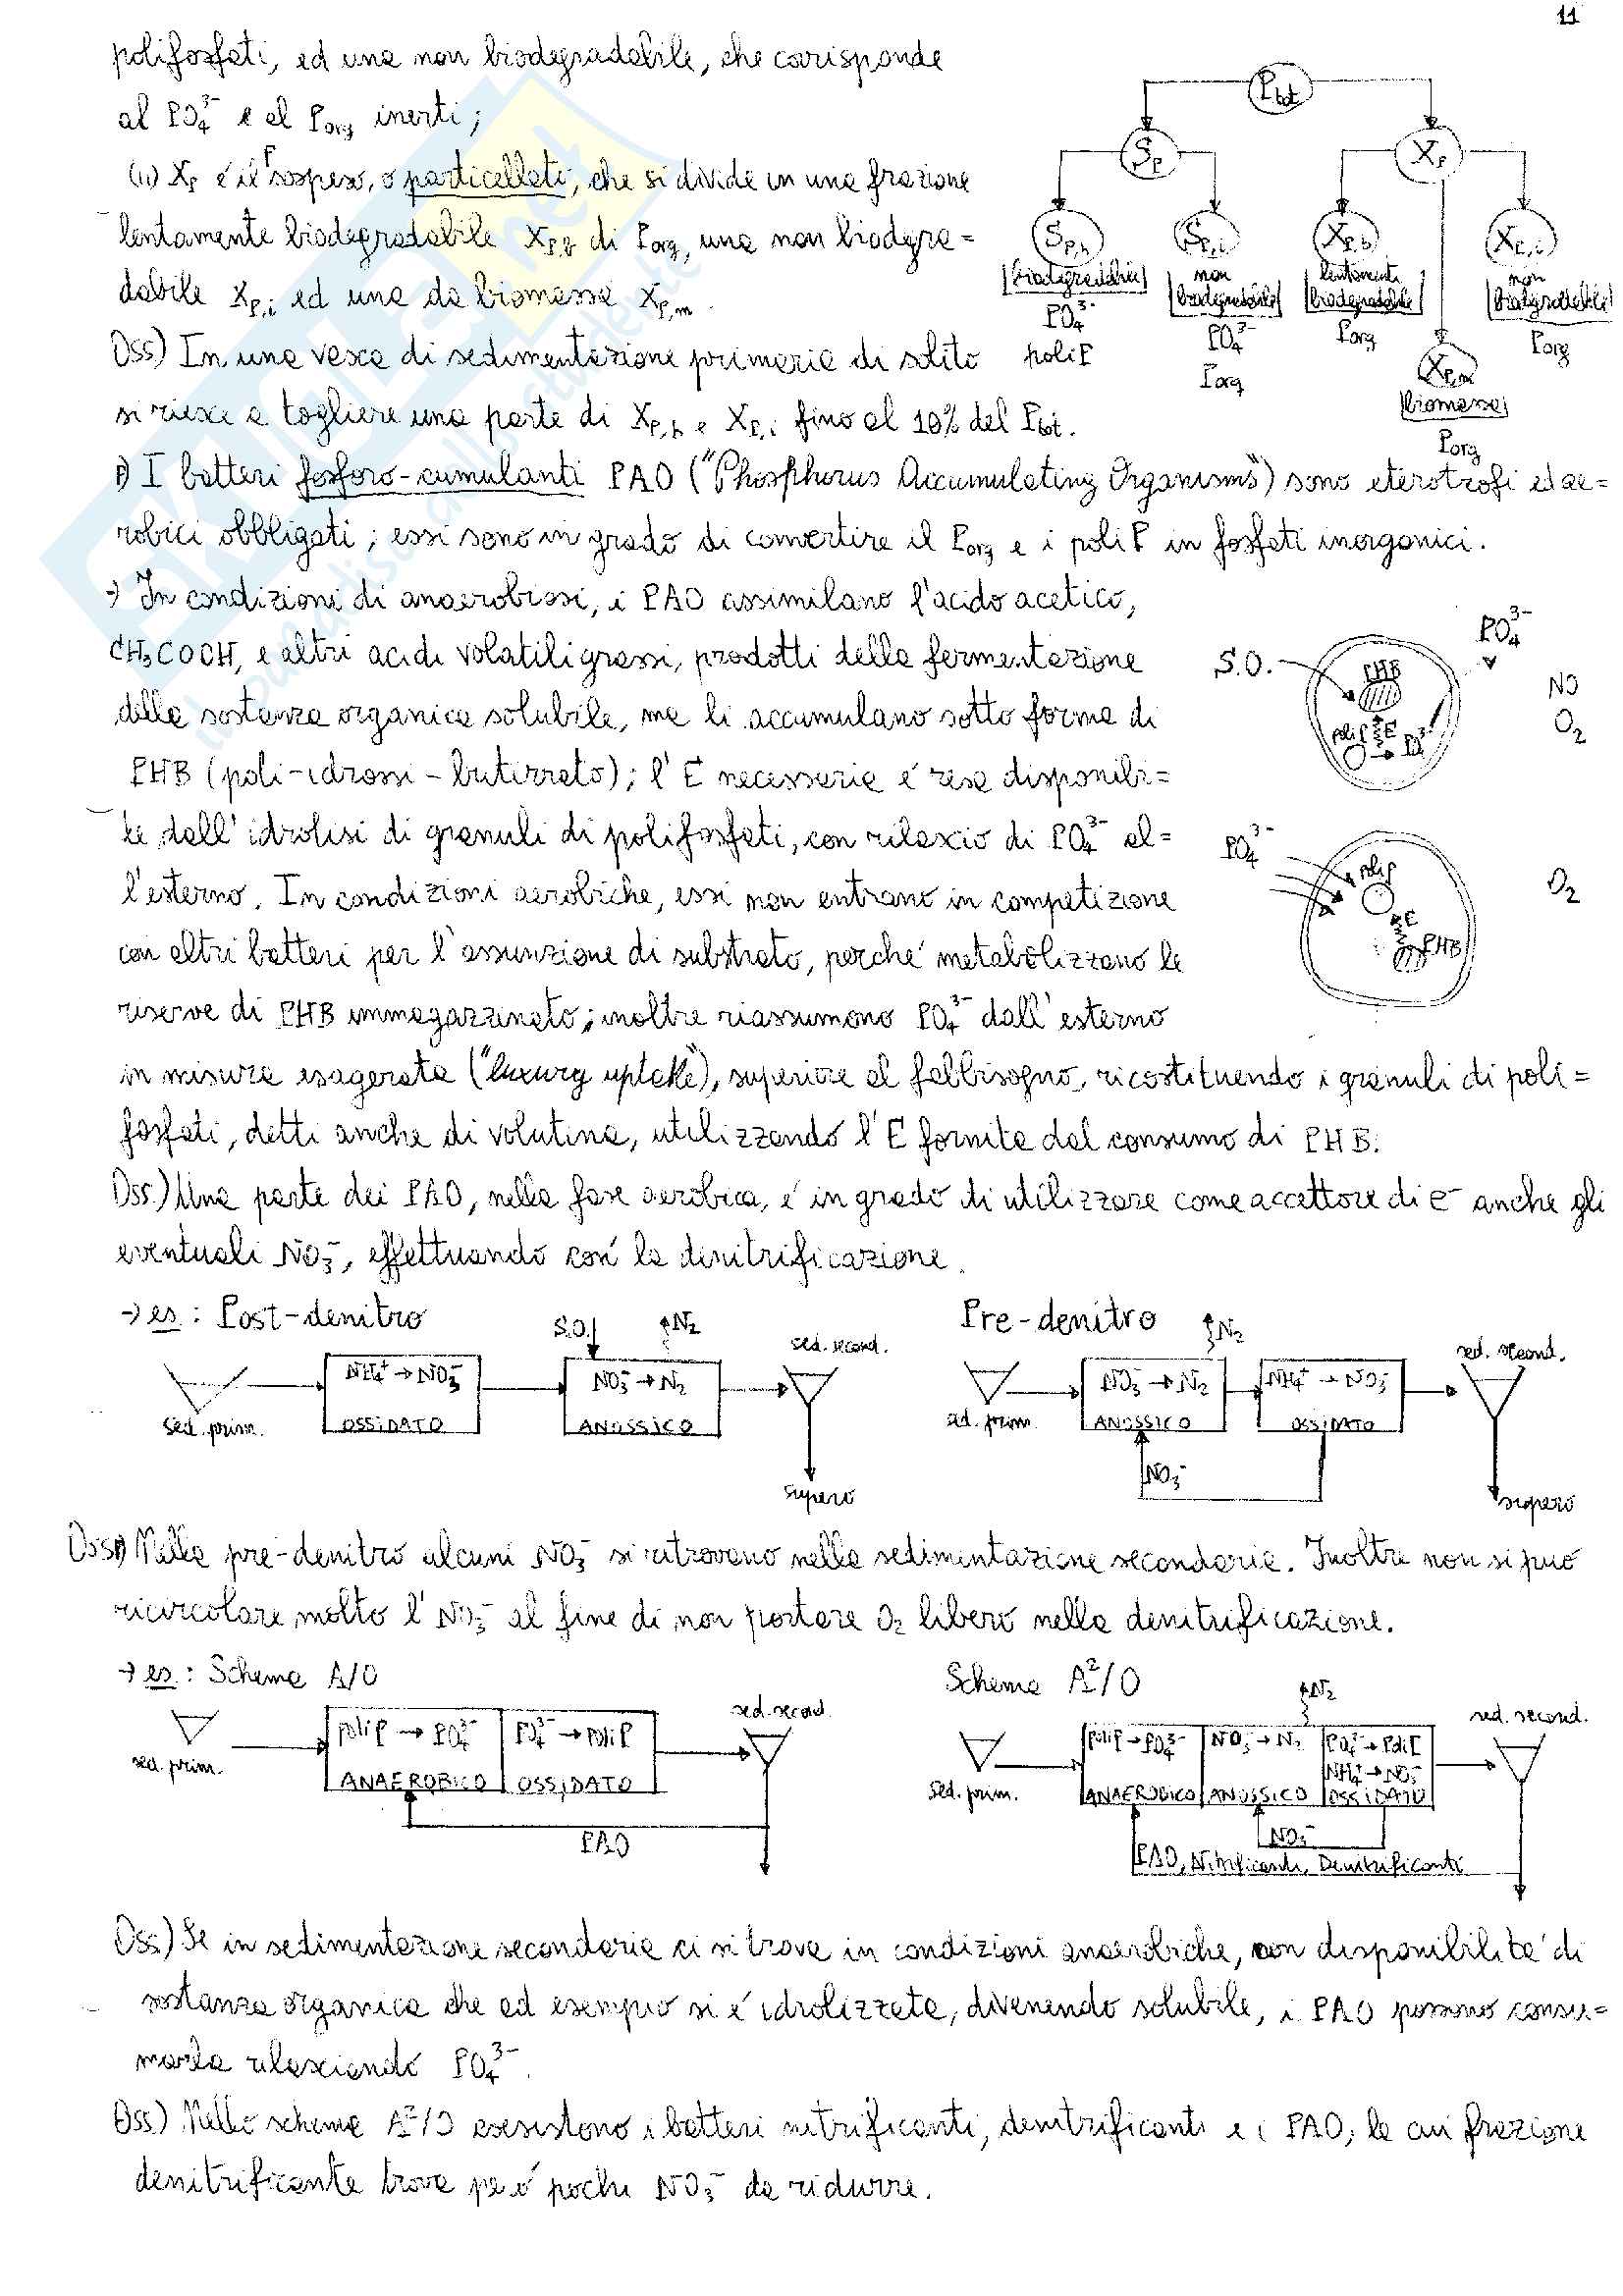 11
polifosfati, ed una non biodegradabile, che corrisponde
al PO₄³⁻ e al P_org inerti;
(ii) X_P è il P sospeso, o particellati, che si divide in una frazione
lentamente biodegradabile X_P,b di P_org, una non biodegra=
dabile X_P,i ed una da biomassa X_P,m.
Oss) In una vasca di sedimentazione primaria di solito
si riesce a togliere una parte di X_P,b e X_P,i fino al 10% del P_tot.
P_tot
S_P X_P
S_P,b S_P,i X_P,b X_P,i
biodegradabile non biodegradabile lentamente biodegradabile non biodegradabile
PO₄³⁻ PO₄³⁻ P_org P_org
poliP P_org
X_P,m
biomassa
P_org
I batteri fosforo-cumulanti PAO ("Phosphorus Accumulating Organisms") sono eterotrofi ed ae=
robici obbligati; essi sono in grado di convertire il P_org e i poliP in fosfati inorganici.
→ In condizioni di anaerobiosi, i PAO assimilano l'acido acetico,
CH₃COOH, e altri acidi volatili grassi, prodotti della fermentazione
della sostanza organica solubile, ma li accumulano sotto forma di
PHB (poli-idrossi-butirrato); l'E necessaria è resa disponibi=
le dall'idrolisi di granuli di polifosfati, con rilascio di PO₄³⁻ al=
l'esterno. In condizioni aerobiche, essi non entrano in competizione
con altri batteri per l'assunzione di substrato, perché metabolizzano le
riserve di PHB immagazzinato; inoltre riassumono PO₄³⁻ dall'esterno
in misura esagerata ("luxury uptake"), superiore al fabbisogno, ricostituendo i granuli di poli=
fosfati, detti anche di volutina, utilizzando l'E fornita dal consumo di PHB.
S.O. PHB PO₄³⁻
poliP E
NO
O₂
PO₄³⁻ poliP O₂
E
PHB
Oss) Una parte dei PAO, nella fase aerobica, è in grado di utilizzare come accettore di e⁻ anche gli
eventuali NO₃⁻, effettuando così la denitrificazione.
→ es.: Post-denitro
S.O. N₂ sed. second.
NH₄⁺ → NO₃⁻ NO₃⁻ → N₂
sed. prim. OSSIDATO ANOSSICO
supero
Pre-denitro
N₂ sed. second.
NO₃⁻ → N₂ NH₄⁺ → NO₃⁻
sed. prim. ANOSSICO OSSIDATO
NO₃⁻
supero
Oss) Nella pre-denitro alcuni NO₃⁻ si ritrovano nella sedimentazione secondaria. Inoltre non si può
ricircolare molto l'NO₃⁻ al fine di non portare O₂ libero nella denitrificazione.
→ es.: Schema A/O
sed. second.
poliP → PO₄³⁻ PO₄³⁻ → poliP
sed. prim. ANAEROBICO OSSIDATO
PAO
Schema A²/O
N₂ sed. second.
poliP → PO₄³⁻ NO₃⁻ → N₂ PO₄³⁻ → poliP
NH₄⁺ → NO₃⁻
sed. prim. ANAEROBICO ANOSSICO OSSIDATO
NO₃⁻
PAO, Nitrificanti, Denitrificanti
Oss) Se in sedimentazione secondaria ci si trova in condizioni anaerobiche, con disponibilità di
sostanza organica che ad esempio si è idrolizzata, divenendo solubile, i PAO possono consu=
marla rilasciando PO₄³⁻.
Oss) Nello schema A²/O coesistono i batteri nitrificanti, denitrificanti e i PAO, la cui frazione
denitrificante trova però pochi NO₃⁻ da ridurre.